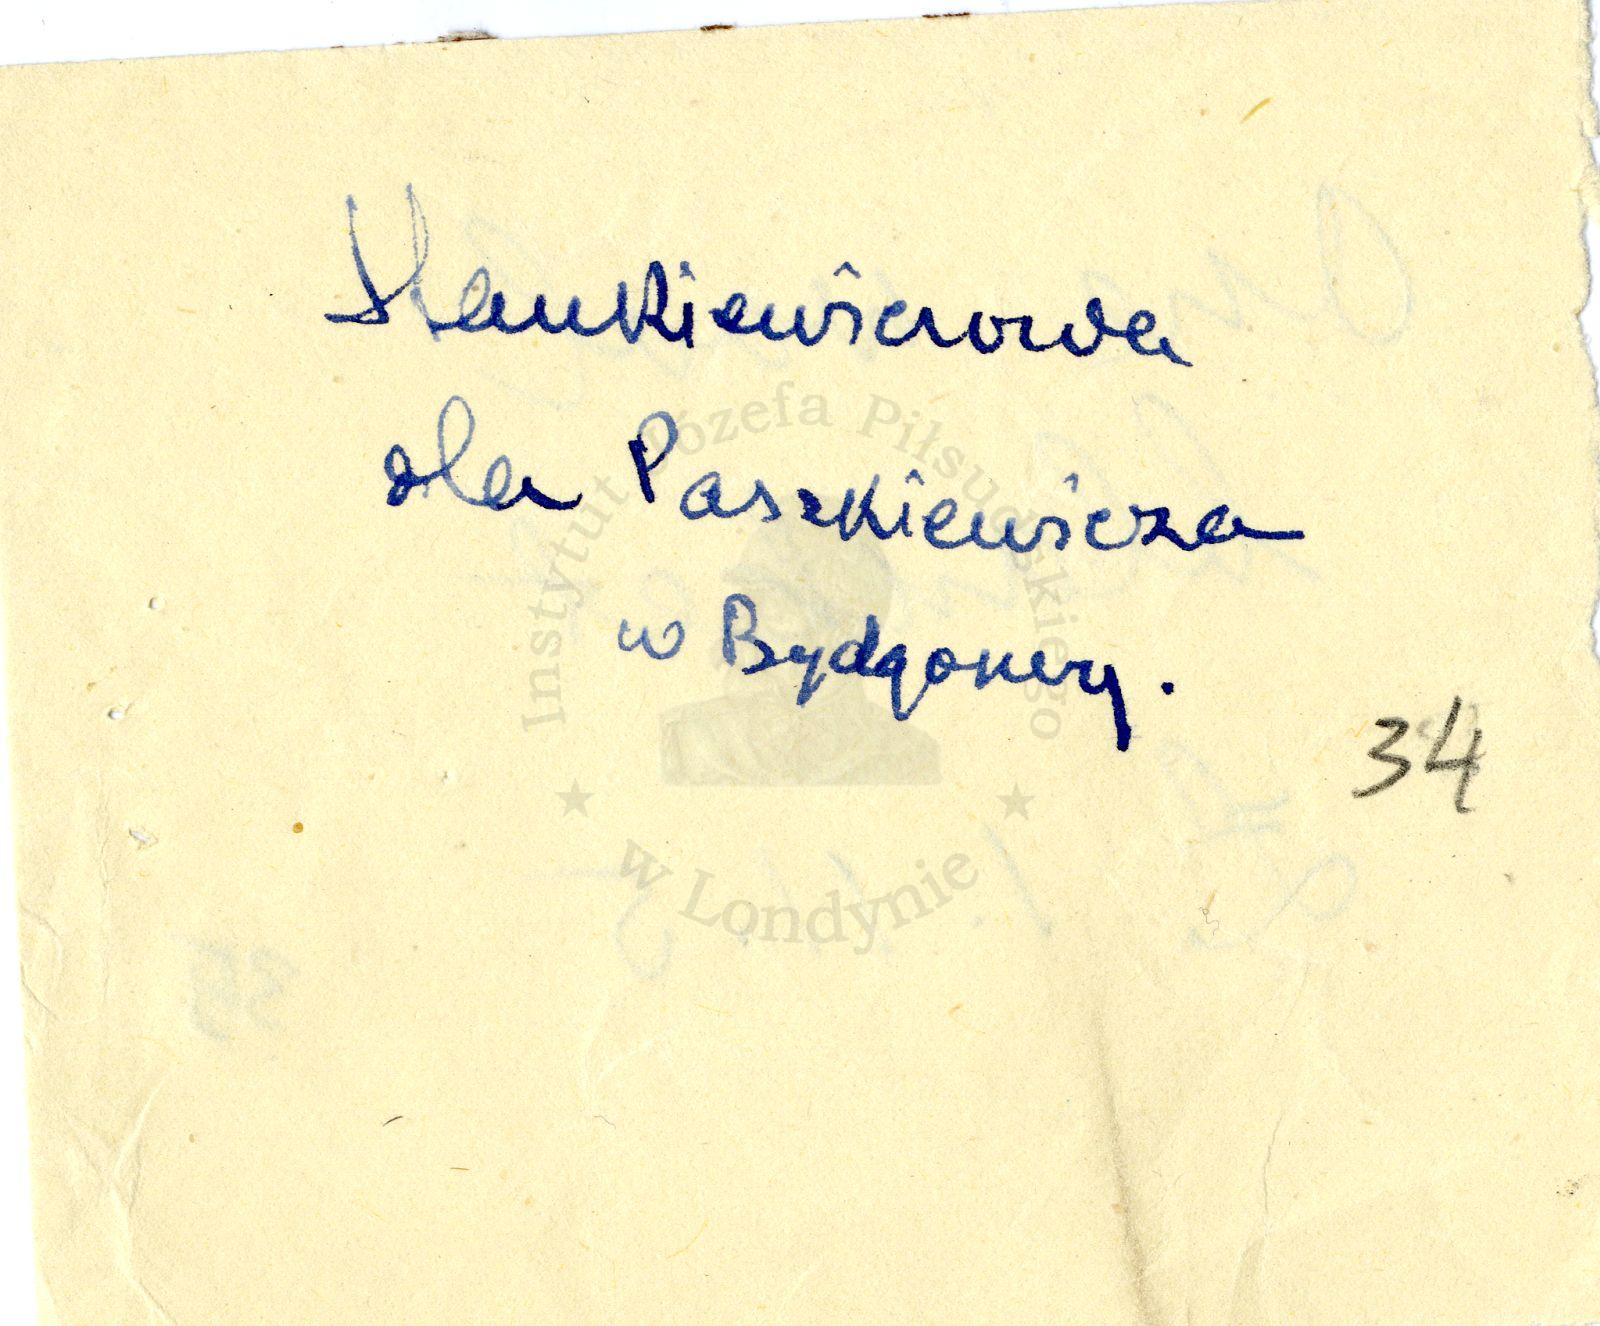 Stankiewiczowa
dla Paszkiewicza
w Bydgoszczy.
34
Instytut Józefa Piłsudskiego
w Londynie